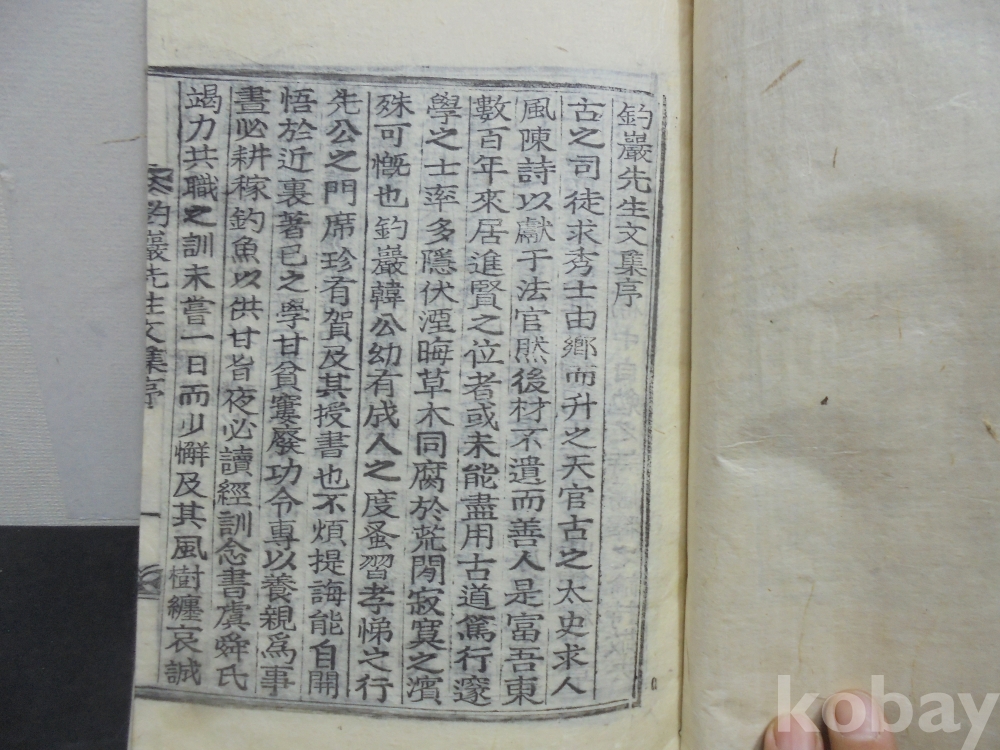 釣巖先生文集序
古之司徒求秀士由鄉而升之天官古之太史求人
風陳詩以獻于法官然後材不遺而善人是富吾東
數百年來居進賢之位者或未能盡用古道篤行邃
學之士率多隱伏湮晦草木同腐於荒閒寂寞之濱
殊可慨也釣巖韓公幼有成人之度蚤習孝悌之行
先公之門席珍有賀及其授書也不煩提誨能自開
悟於近裏著已之學甘貧窶廢功令專以養親爲事
晝必耕稼釣魚以供甘旨夜必讀經訓念書虞舜氏
竭力共職之訓未嘗一日而少懈及其風樹纏哀誠
釣巖先生文集序
一
kobay